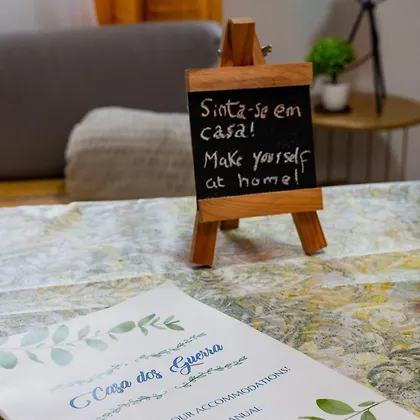 Sinta-se em
casa!
Make yourself
at home!
Casa dos Guerra
OUR ACCOMMODATIONS!
MANUAL